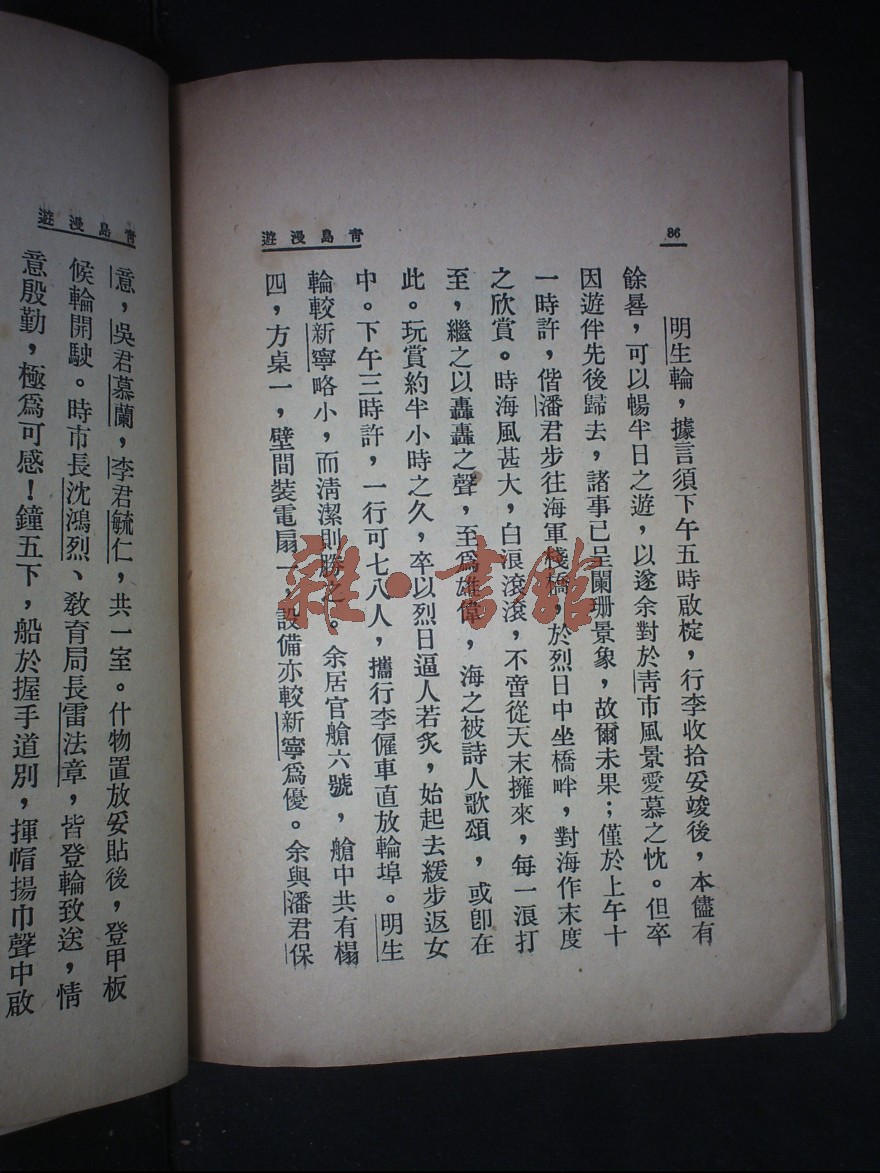 86
青島漫遊
明生輪，據言須下午五時啟椗，行李收拾妥竣後，本儘有
餘晷，可以暢半日之遊，以遂余對於青市風景愛慕之忱。但卒
因遊伴先後歸去，諸事已呈闌珊景象，故爾未果；僅於上午十
一時許，偕潘君步往海軍棧橋，於烈日中坐橋畔，對海作末度
之欣賞。時海風甚大，白浪滾滾，不啻從天末擁來，每一浪打
至，繼之以轟轟之聲，至爲雄偉，海之被詩人歌頌，或卽在
此。玩賞約半小時之久，卒以烈日逼人若炙，始起去緩步返女
中。下午三時許，一行可七八人，攜行李僱車直放輪埠。明生
輪較新寧略小，而清潔則勝之。余居官艙六號，艙中共有榻
四，方桌一，壁間裝電扇一，設備亦較新寧爲優。余與潘君保
青島漫遊
意，吳君慕蘭，李君毓仁，共一室。什物置放妥貼後，登甲板
候輪開駛。時市長沈鴻烈、敎育局長雷法章，皆登輪致送，情
意殷勤，極爲可感！鐘五下，船於握手道別，揮帽揚巾聲中啟
雜·書館